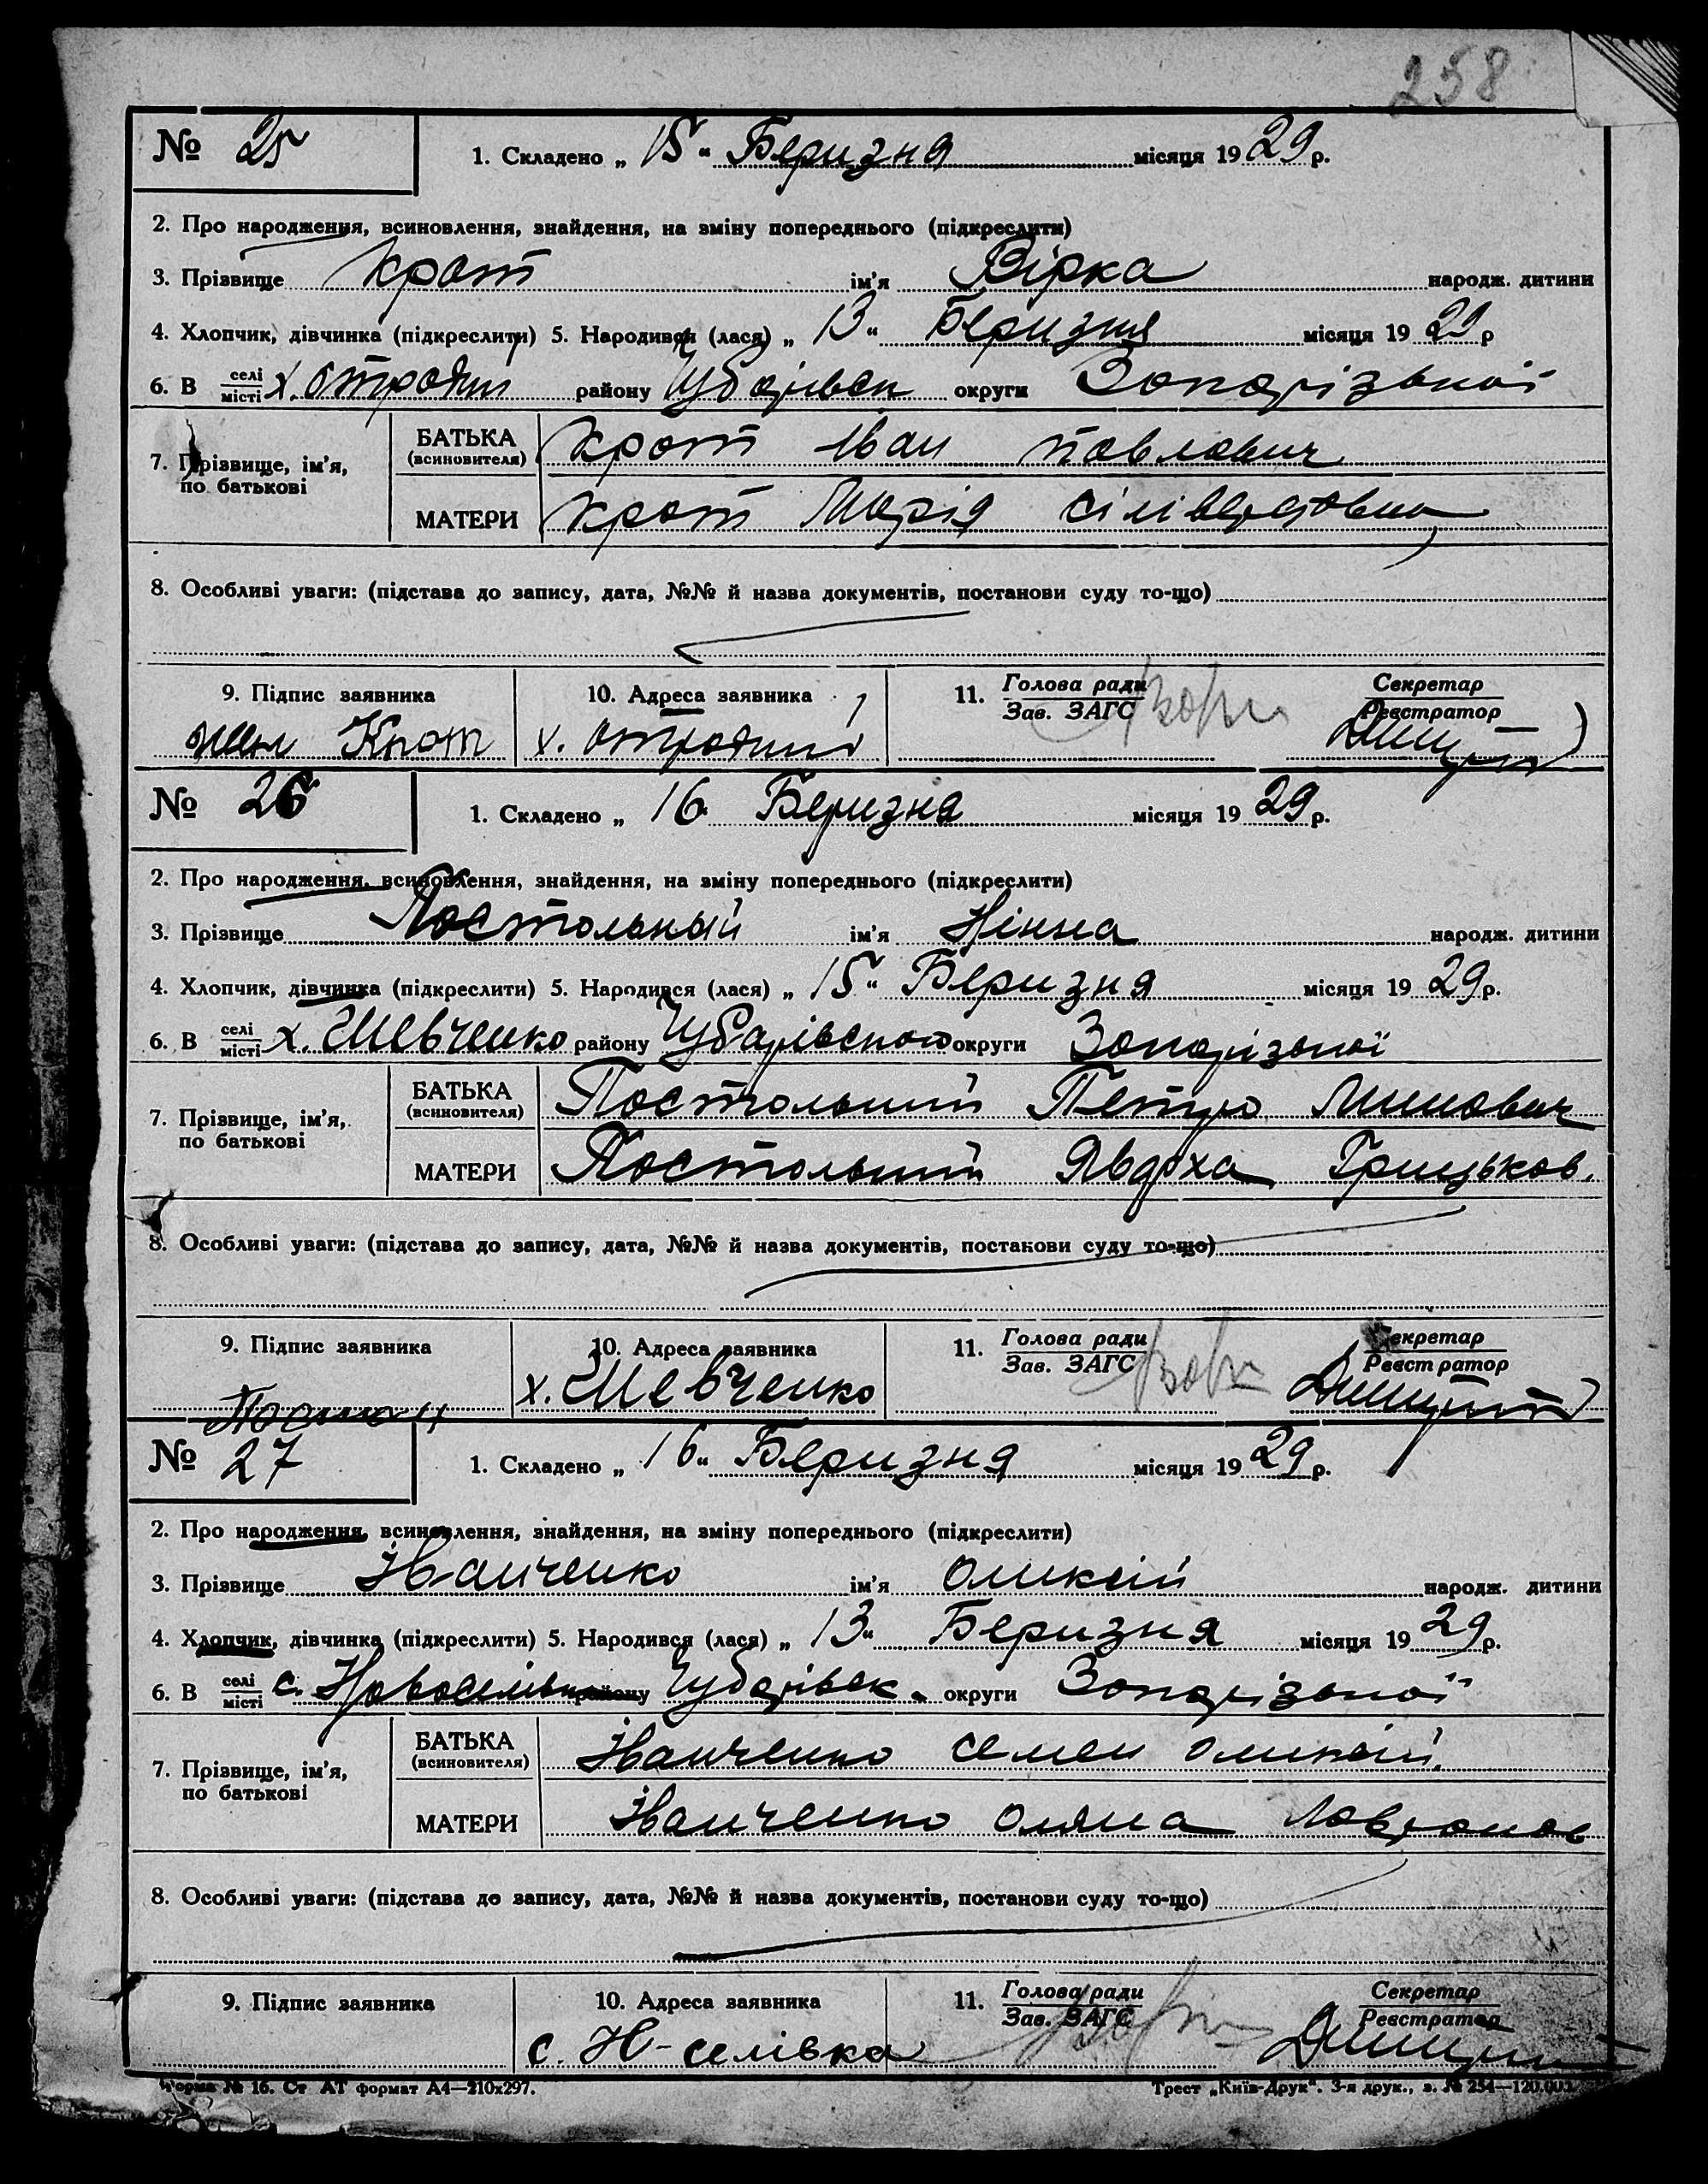 258
№ 25 1. Складено „ 15 “ Беризня місяця 1929 р.
2. Про народження, всиновлення, знайдення, на зміну попереднього (підкреслити)
3. Прізвище Крот ім’я Вірка народж. дитини
4. Хлопчик, дівчинка (підкреслити) 5. Народився (лася) „ 13 “ Беризня місяця 1929 р
6. В селі/місті х. Отродний району Чубарівськ округи Запорізької
7. Прізвище, ім’я, по батькові
БАТЬКА (всиновителя) Крот Іван Павлович
МАТЕРИ Крот Марія Сіліверстовна
8. Особливі уваги: (підстава до запису, дата, №№ й назва документів, постанови суду то-що)
9. Підпис заявника 10. Адреса заявника 11. Голова ради Секретар
Зав. ЗАГС Реєстратор
Крот х. Отродний
№ 26 1. Складено „ 16 Беризня місяця 1929 р.
2. Про народження, всиновлення, знайдення, на зміну попереднього (підкреслити)
3. Прізвище Постольный ім’я Нінна народж. дитини
4. Хлопчик, дівчинка (підкреслити) 5. Народився (лася) „ 15 “ Беризня місяця 1929 р.
6. В селі/місті х. Шевченко району Чубарівського округи Запорізької
7. Прізвище, ім’я, по батькові
БАТЬКА (всиновителя) Постольний Петро Минович
МАТЕРИ Постольний Явдоха Грицьков.
8. Особливі уваги: (підстава до запису, дата, №№ й назва документів, постанови суду то-що)
9. Підпис заявника 10. Адреса заявника 11. Голова ради Секретар
Зав. ЗАГС Реєстратор
х. Шевченко
№ 27 1. Складено „ 16 “ Беризня місяця 1929 р.
2. Про народження, всиновлення, знайдення, на зміну попереднього (підкреслити)
3. Прізвище Іванченко ім’я Оликсій народж. дитини
4. Хлопчик, дівчинка (підкреслити) 5. Народився (лася) „ 13 “ Беризня місяця 1929 р.
6. В селі/місті с. Новоселівка району Чубарівськ. округи Запорізької
7. Прізвище, ім’я, по батькові
БАТЬКА (всиновителя) Іванченко Семен Оликсій.
МАТЕРИ Іванченко Оляна Лавронов
8. Особливі уваги: (підстава до запису, дата, №№ й назва документів, постанови суду то-що)
9. Підпис заявника 10. Адреса заявника 11. Голова ради Секретар
Зав. ЗАГС Реєстратор
с. Н-селівка
Форма № 16. Ст АТ формат А4—210х297. Трест „Київ-Друк“. 3-я друк., з. № 254—120.000